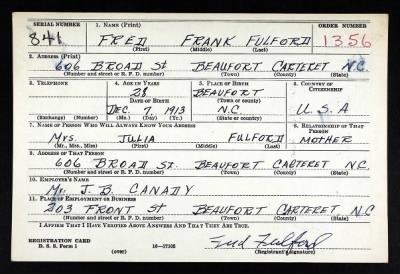 SERIAL NUMBER 1. NAME (Print) ORDER NUMBER
841 FRED FRANK FULFORD 1356
(First) (Middle) (Last)
2. ADDRESS (Print)
606 BROAD St BEAUFORT CARTERET N.C.
(Number and street or R. F. D. number) (Town) (County) (State)
3. TELEPHONE 4. AGE IN YEARS 5. PLACE OF BIRTH 6. COUNTRY OF CITIZENSHIP
28 BEAUFORT
DATE OF BIRTH (Town or county)
DEC 7 1913 N.C. U.S.A
(Exchange) (Number) (Mo.) (Day) (Yr.) (State or country)
7. NAME OF PERSON WHO WILL ALWAYS KNOW YOUR ADDRESS 8. RELATIONSHIP OF THAT PERSON
Mrs. JULIA FULFORD MOTHER
(Mr., Mrs., Miss) (First) (Middle) (Last)
9. ADDRESS OF THAT PERSON
606 BROAD ST. BEAUFORT CARTERET N.C.
(Number and street or R. F. D. number) (Town) (County) (State)
10. EMPLOYER'S NAME
Mr. J. D. CANADY
11. PLACE OF EMPLOYMENT OR BUSINESS
203 FRONT St BEAUFORT CARTERET N.C
(Number and street or R. F. D. number) (Town) (County) (State)
I AFFIRM THAT I HAVE VERIFIED ABOVE ANSWERS AND THAT THEY ARE TRUE.
REGISTRATION CARD
D. S. S. Form 1 (over) 16—17105 Fred Fulford
(Registrant's signature)